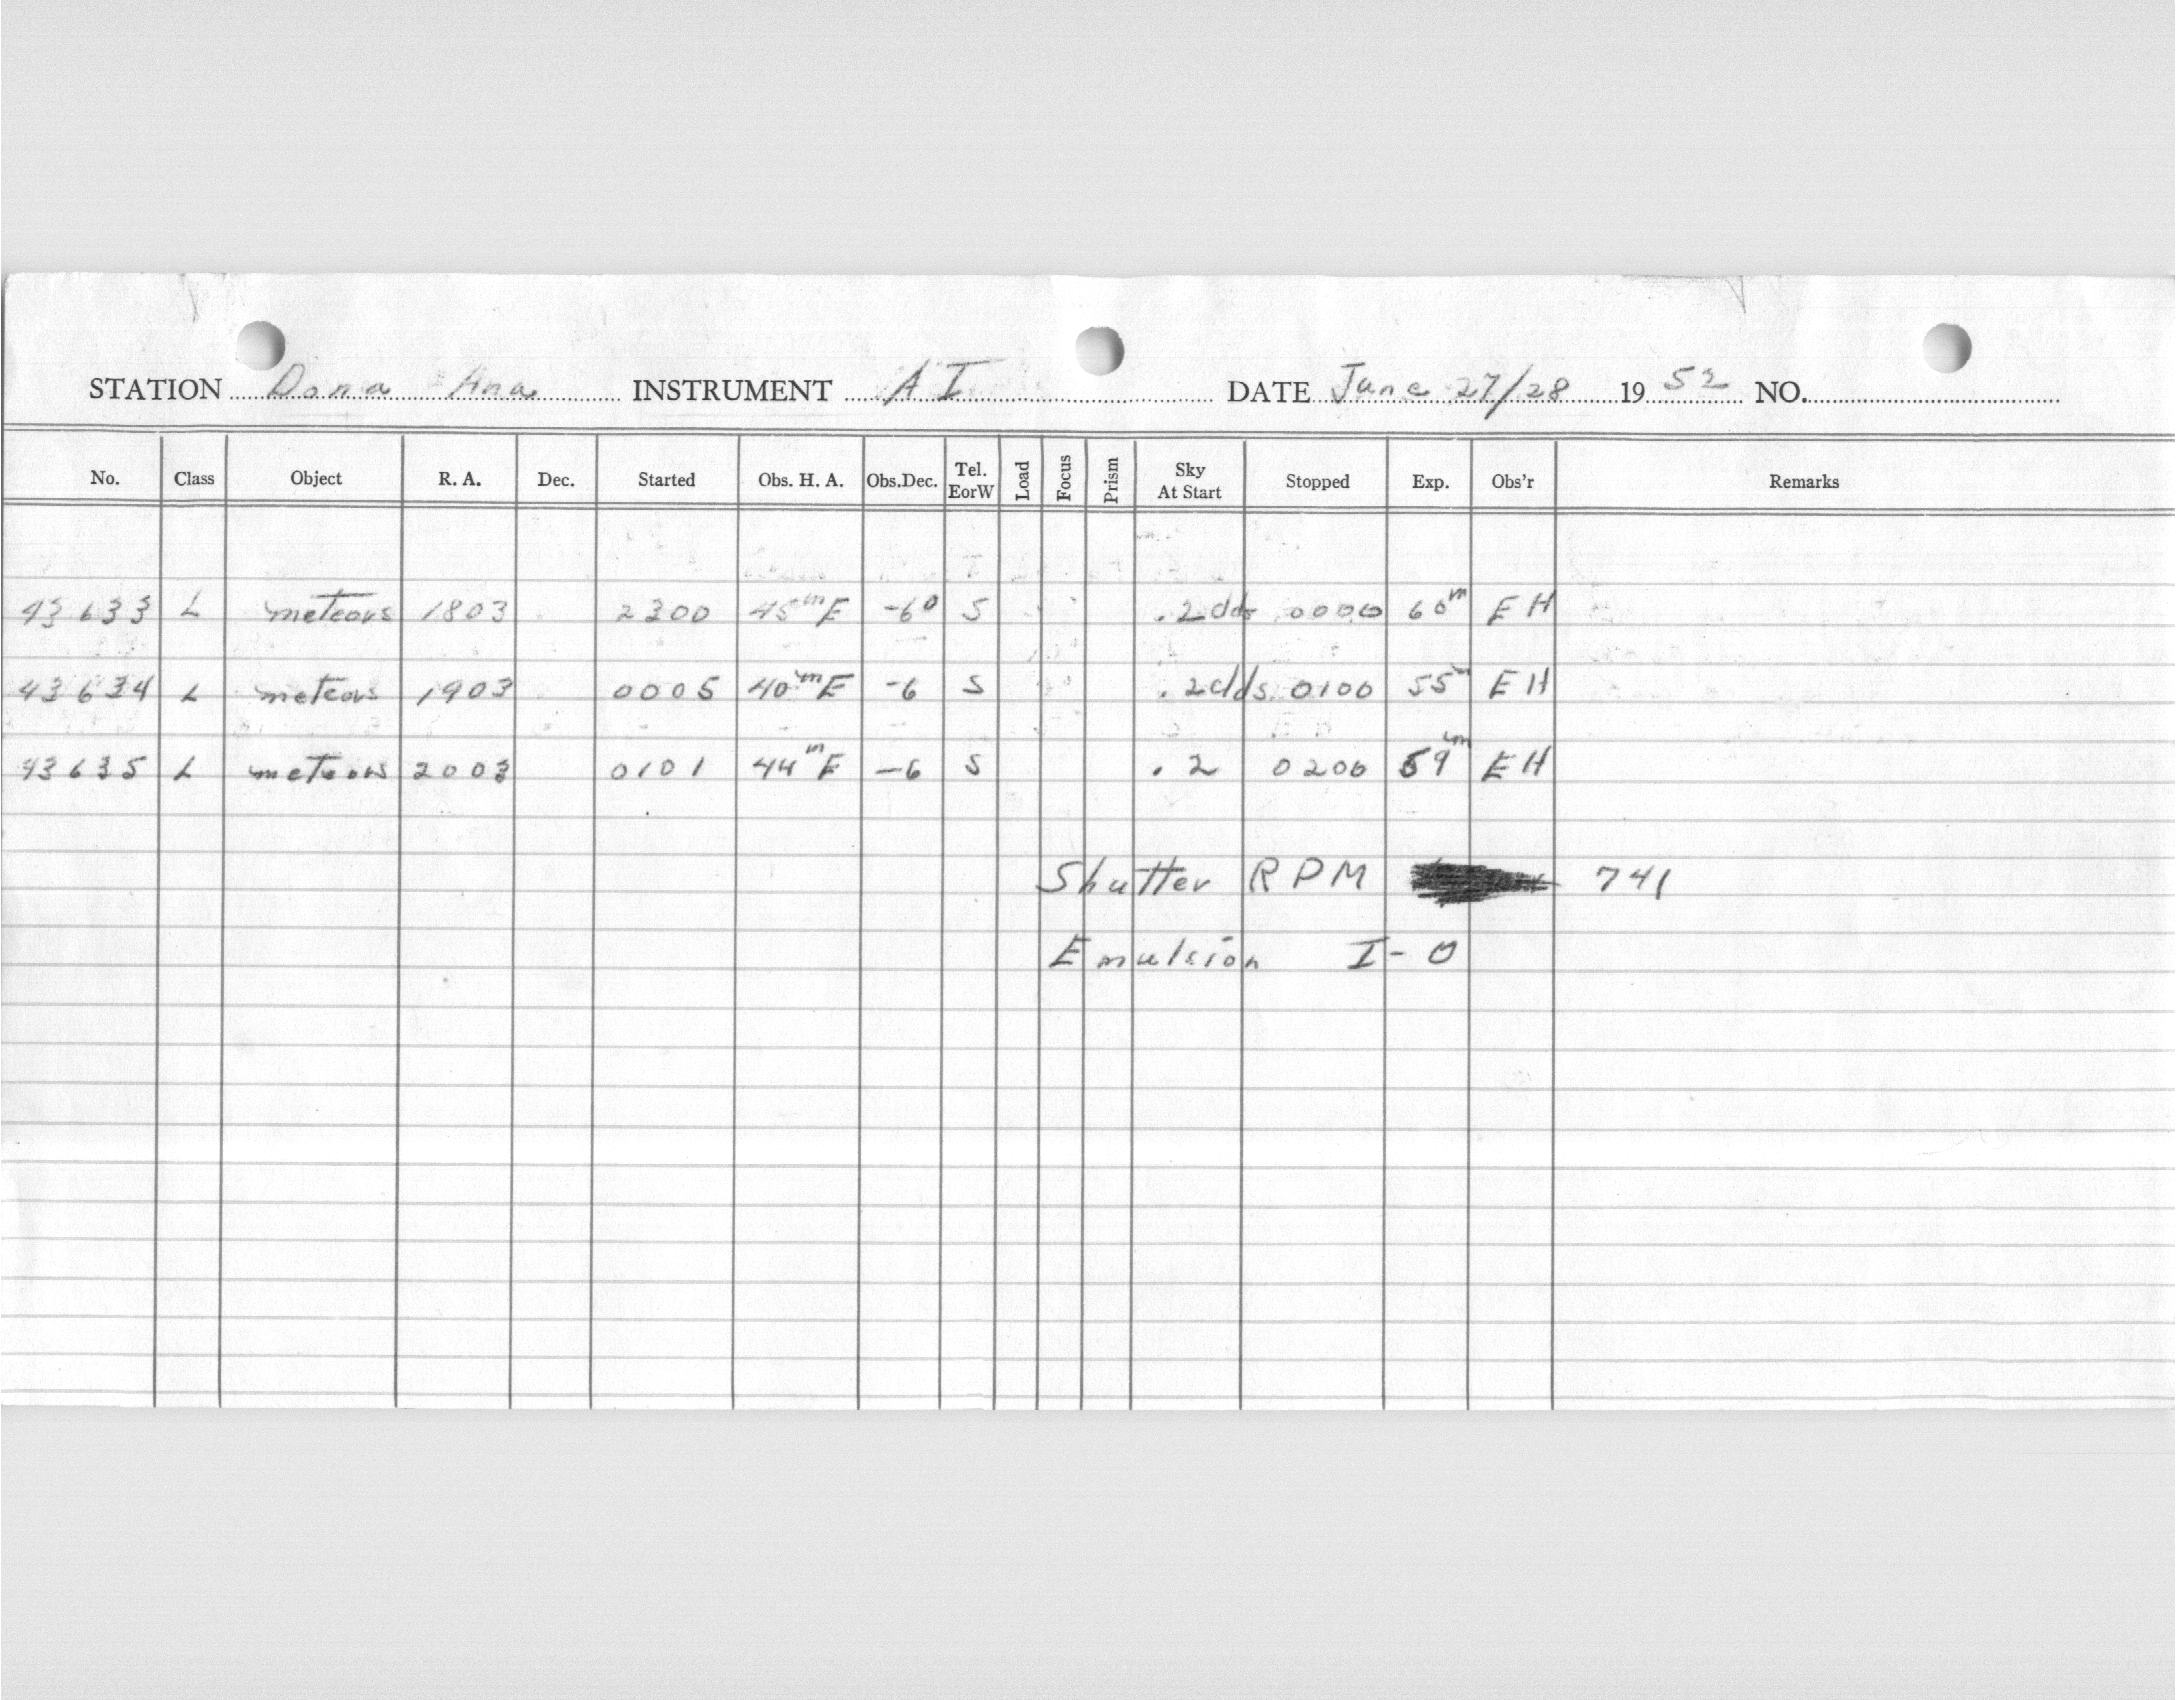 STATION Dona Ana INSTRUMENT A I DATE June 27/28 19 52 NO.
No. Class Object R. A. Dec. Started Obs. H. A. Obs.Dec. Tel. EorW Load Focus Prism Sky At Start Stopped Exp. Obs'r Remarks
43633 L meteors 1803 2300 45m E -6° S .2 dds 0000 60m EH
43634 L meteors 1903 0005 40m E -6 S .2 dds 0100 55m EH
43635 L meteors 2003 0101 44m E -6 S .2 0200 59m EH
Shutter RPM 741
Emulsion I-O